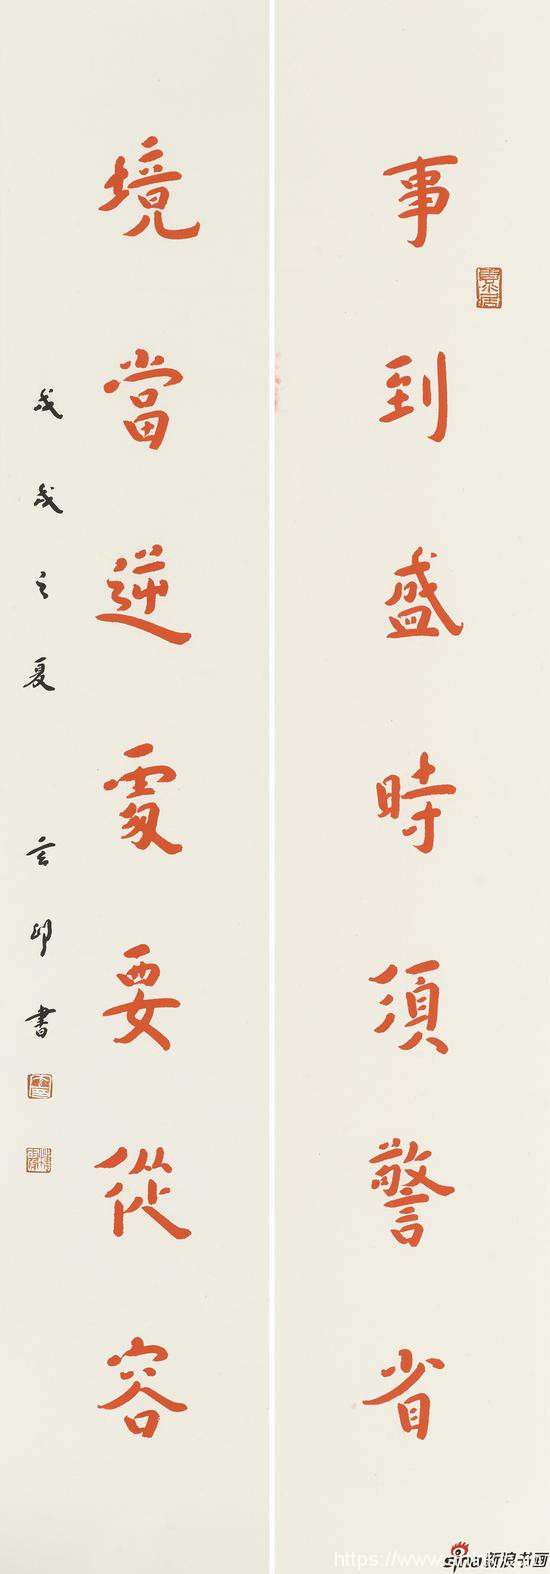 事到盛時須警省
境當逆處要從容
戊戌之夏
印書
https://www.
sina新浪书画